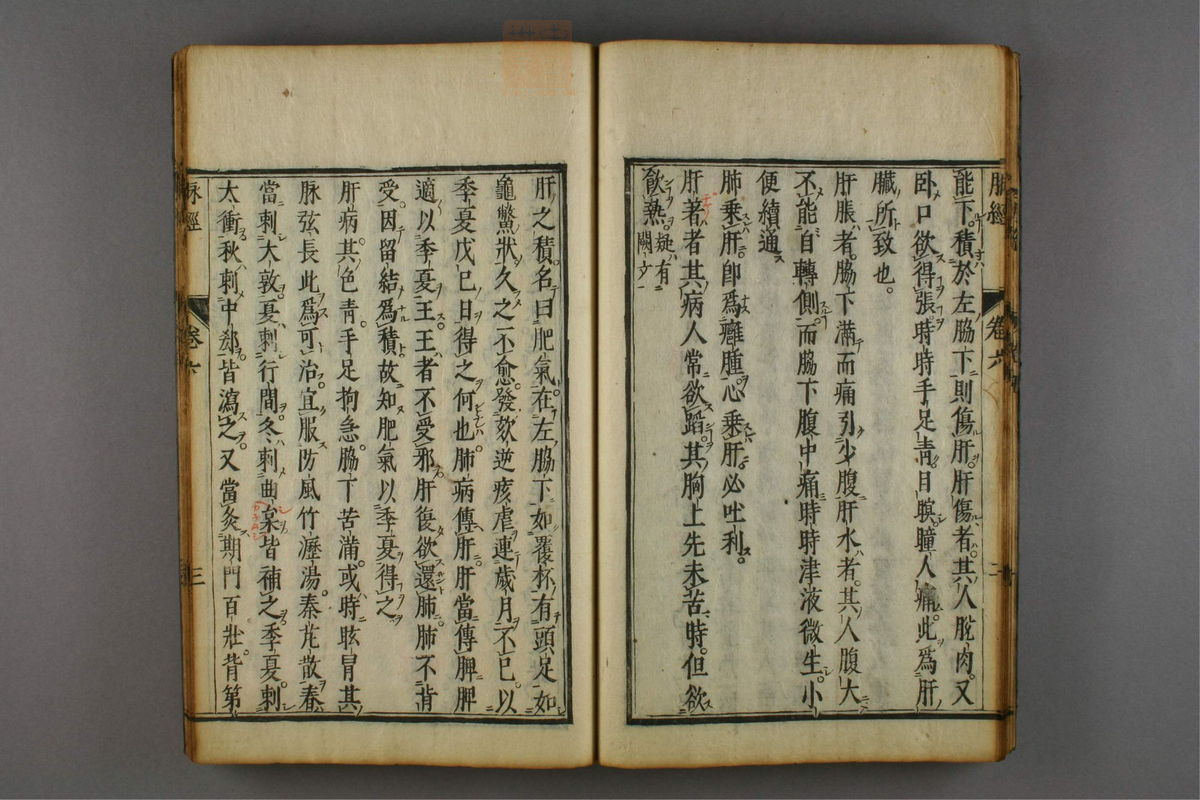 脉經 卷六 二
能下積於左脇下則傷肝肝傷者其人脫肉又
卧口欲得張時時手足靑目瞑瞳人痛此爲肝
臟所致也
肝脹者脇下滿而痛引少腹肝水者其人腹大
不能自轉側而脇下腹中痛時時津液微生小
便續通
肺乘肝卽爲癰腫心乘肝必吐利
肝著者其病人常欲蹈其胸上先未苦時但欲
飮熱疑有闕文
肝之積名曰肥氣在左脇下如覆杯有頭足如
龜鱉狀久久不愈發欬逆痎瘧連歲月不已以
季夏戊己日得之何也肺病傳肝肝當傳脾脾
適以季夏王王者不受邪肝復欲還肺肺不肯
受因留結爲積故知肥氣以季夏得之
肝病其色靑手足拘急脇下苦滿或時眩冒其
脉弦長此爲可治宜服防風竹瀝湯秦艽散春
當刺大敦夏刺行間冬刺曲泉皆補之季夏刺
太衝秋刺中郄皆瀉之又當灸期門百壯背第
脉經 卷六 三